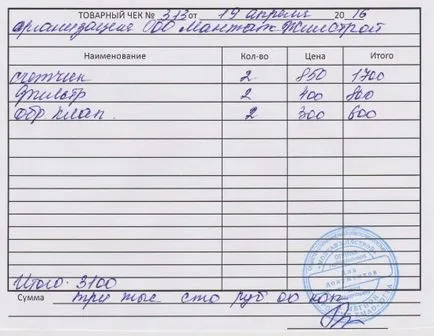 ТОВАРНЫЙ ЧЕК № 313 от 19 апреля 2016
организация ООО Монтаж ЖилСтрой
Наименование Кол-во Цена Итого
счетчик 2 850 1700
фильтр 2 400 800
обр клап. 2 300 600
Итого: 3100
Сумма три тыс сто руб 00 коп
для документов